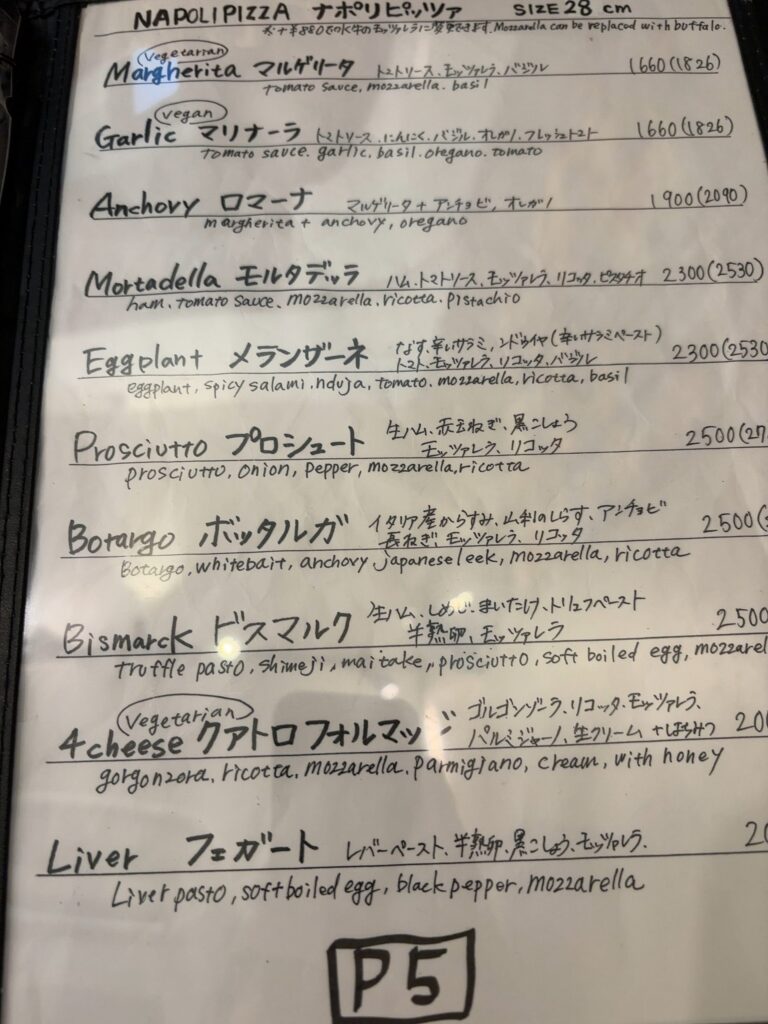 NAPOLIPIZZA ナポリピッツァ SIZE 28 cm
水牛のモッツァレラに変更できます. Mozzarella can be replaced with buffalo.
Vegetarian
Margherita マルゲリータ トマトソース、モッツァレラ、バジル 1660(1826)
tomato sauce, mozzarella. basil
vegan
Garlic マリナーラ トマトソース、にんにく、バジル、オレガノ、フレッシュトマト 1660(1826)
tomato sauce. garlic. basil. oregano. tomato
Anchovy ロマーナ マルゲリータ + アンチョビ、オレガノ 1900(2090)
margherita + anchovy, oregano
Mortadella モルタデッラ ハム、トマトソース、モッツァレラ、リコッタ、ピスタチオ 2300(2530)
ham. tomato sauce. mozzarella. ricotta. pistachio
Eggplant メランザーネ なす、辛いサラミ、ンドゥイヤ(辛いサラミペースト) 2300(2530
トマト、モッツァレラ、リコッタ、バジル
eggplant, spicy salami. nduja, tomato. mozzarella, ricotta, basil
Prosciutto プロシュート 生ハム、赤玉ねぎ、黒こしょう 2500(27
モッツァレラ、リコッタ
prosciutto, onion, pepper, mozzarella, ricotta
Botargo ボッタルガ イタリア産からすみ、しらす、アンチョビ 2500(
長ねぎ、モッツァレラ、リコッタ
Botargo, whitebait, anchovy japanese leek, mozzarella, ricotta
Bismarck ビスマルク 生ハム、しめじ、まいたけ、トリュフペースト 2500
半熟卵、モッツァレラ
truffle pasto, shimeji, maitake, prosciutto, soft boiled egg, mozzarel
Vegetarian
4cheese クアトロフォルマッジ ゴルゴンゾーラ、リコッタ、モッツァレラ、
パルミジャーノ、生クリーム +はちみつ
gorgonzora, ricotta, mozzarella. parmigiano, cream, with honey
Liver フェガート レバーペースト、半熟卵、黒こしょう、モッツァレラ、
Liver pasto, soft boiled egg, black pepper, mozzarella
P5